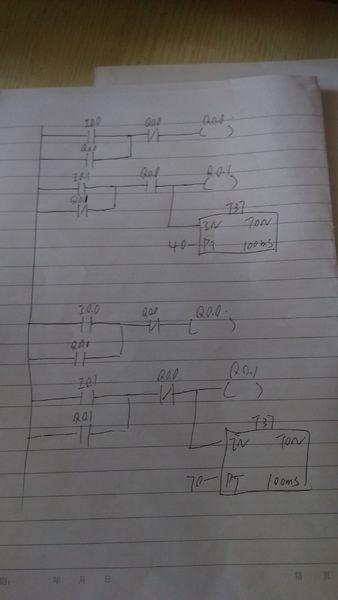 I0.0 Q0.0 Q0.0
Q0.0
I0.1 Q0.0 Q0.1
Q0.1
T37
IN TON
40 PT 100ms
I0.0 Q0.0 Q0.0
Q0.0
I0.1 Q0.0 Q0.1
Q0.1
T37
IN TON
70 PT 100ms
年 月 日